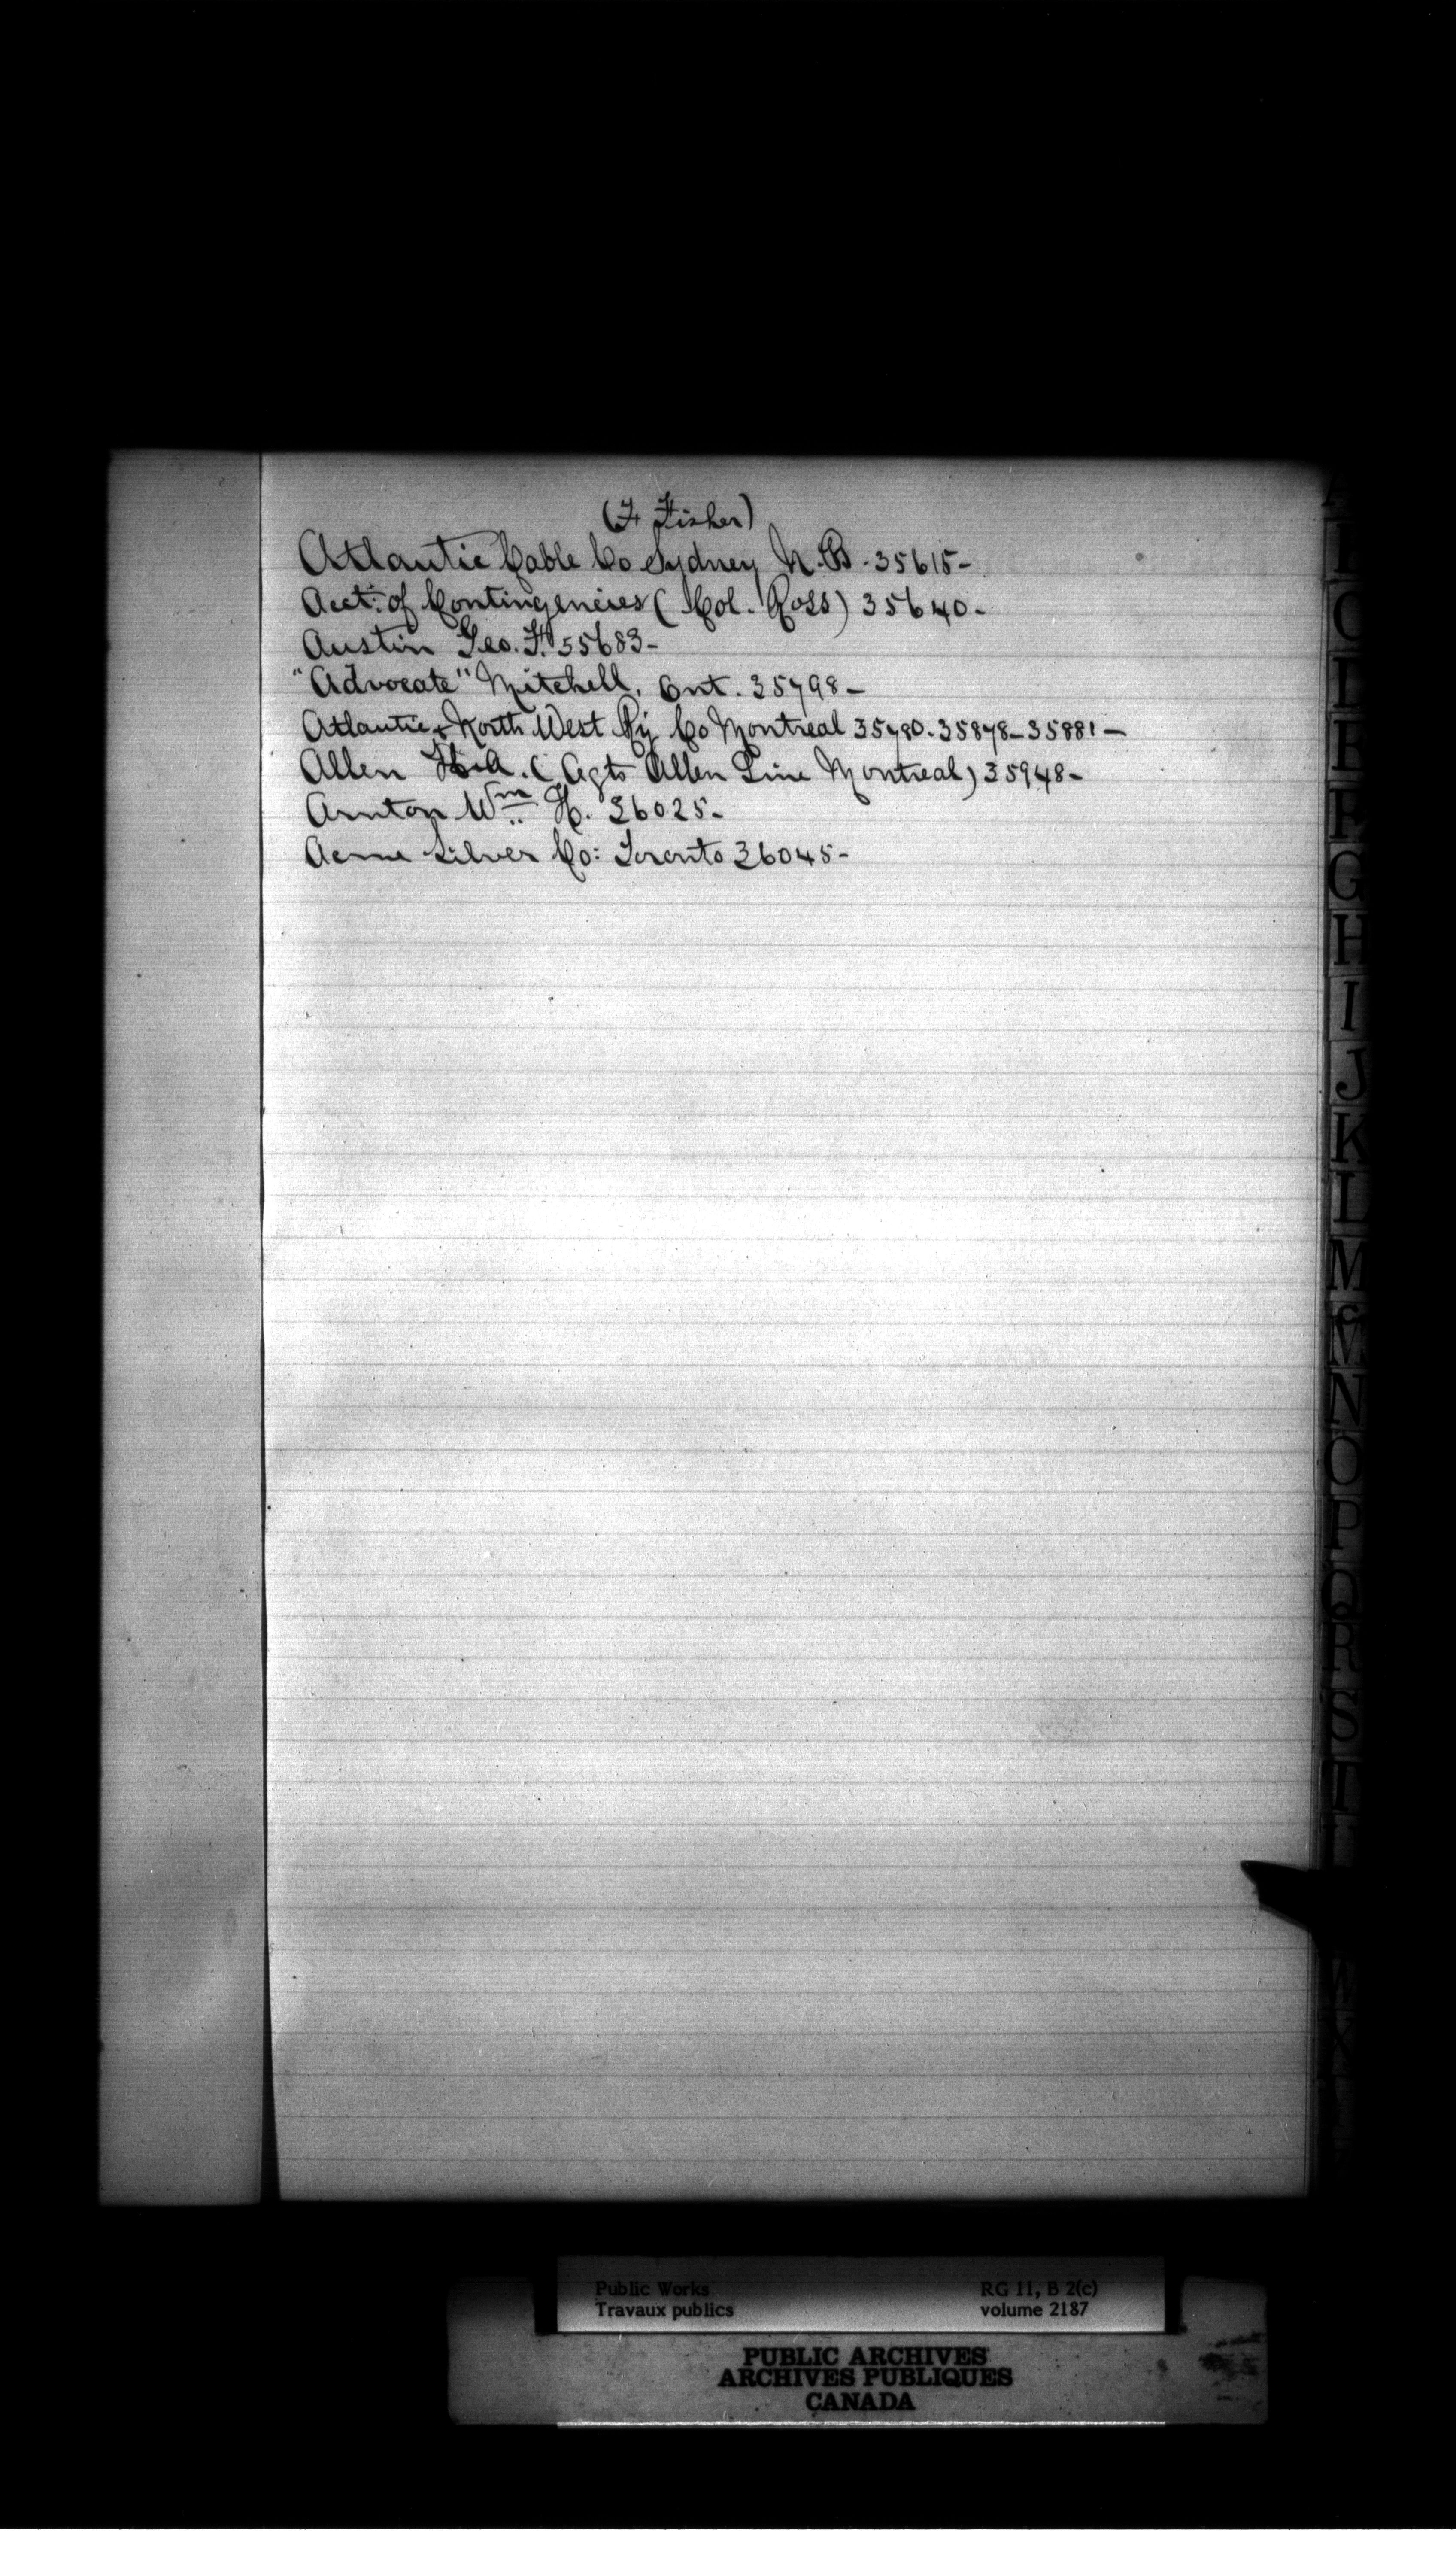 (F Fisher)
Atlantic Cable Co Sydney N.B. 35615-
Acct: of Contingencies (Col. Ross) 35640-
Austin Geo. F. 35683-
"Advocate" Mitchell, Ont. 35798-
Atlantic & North West Ry Co Montreal 35780-35878-35881-
Allen H.A. (Agts Allen Line Montreal) 35948-
Arnton Wm H. 36025-
Acme Silver Co: Toronto 36045-
A
B
C
D
E
F
G
H
I
J
K
L
M
Mc
N
O
P
Q
R
S
T
W
X
Public Works RG 11, B 2(c)
Travaux publics volume 2187
PUBLIC ARCHIVES
ARCHIVES PUBLIQUES
CANADA